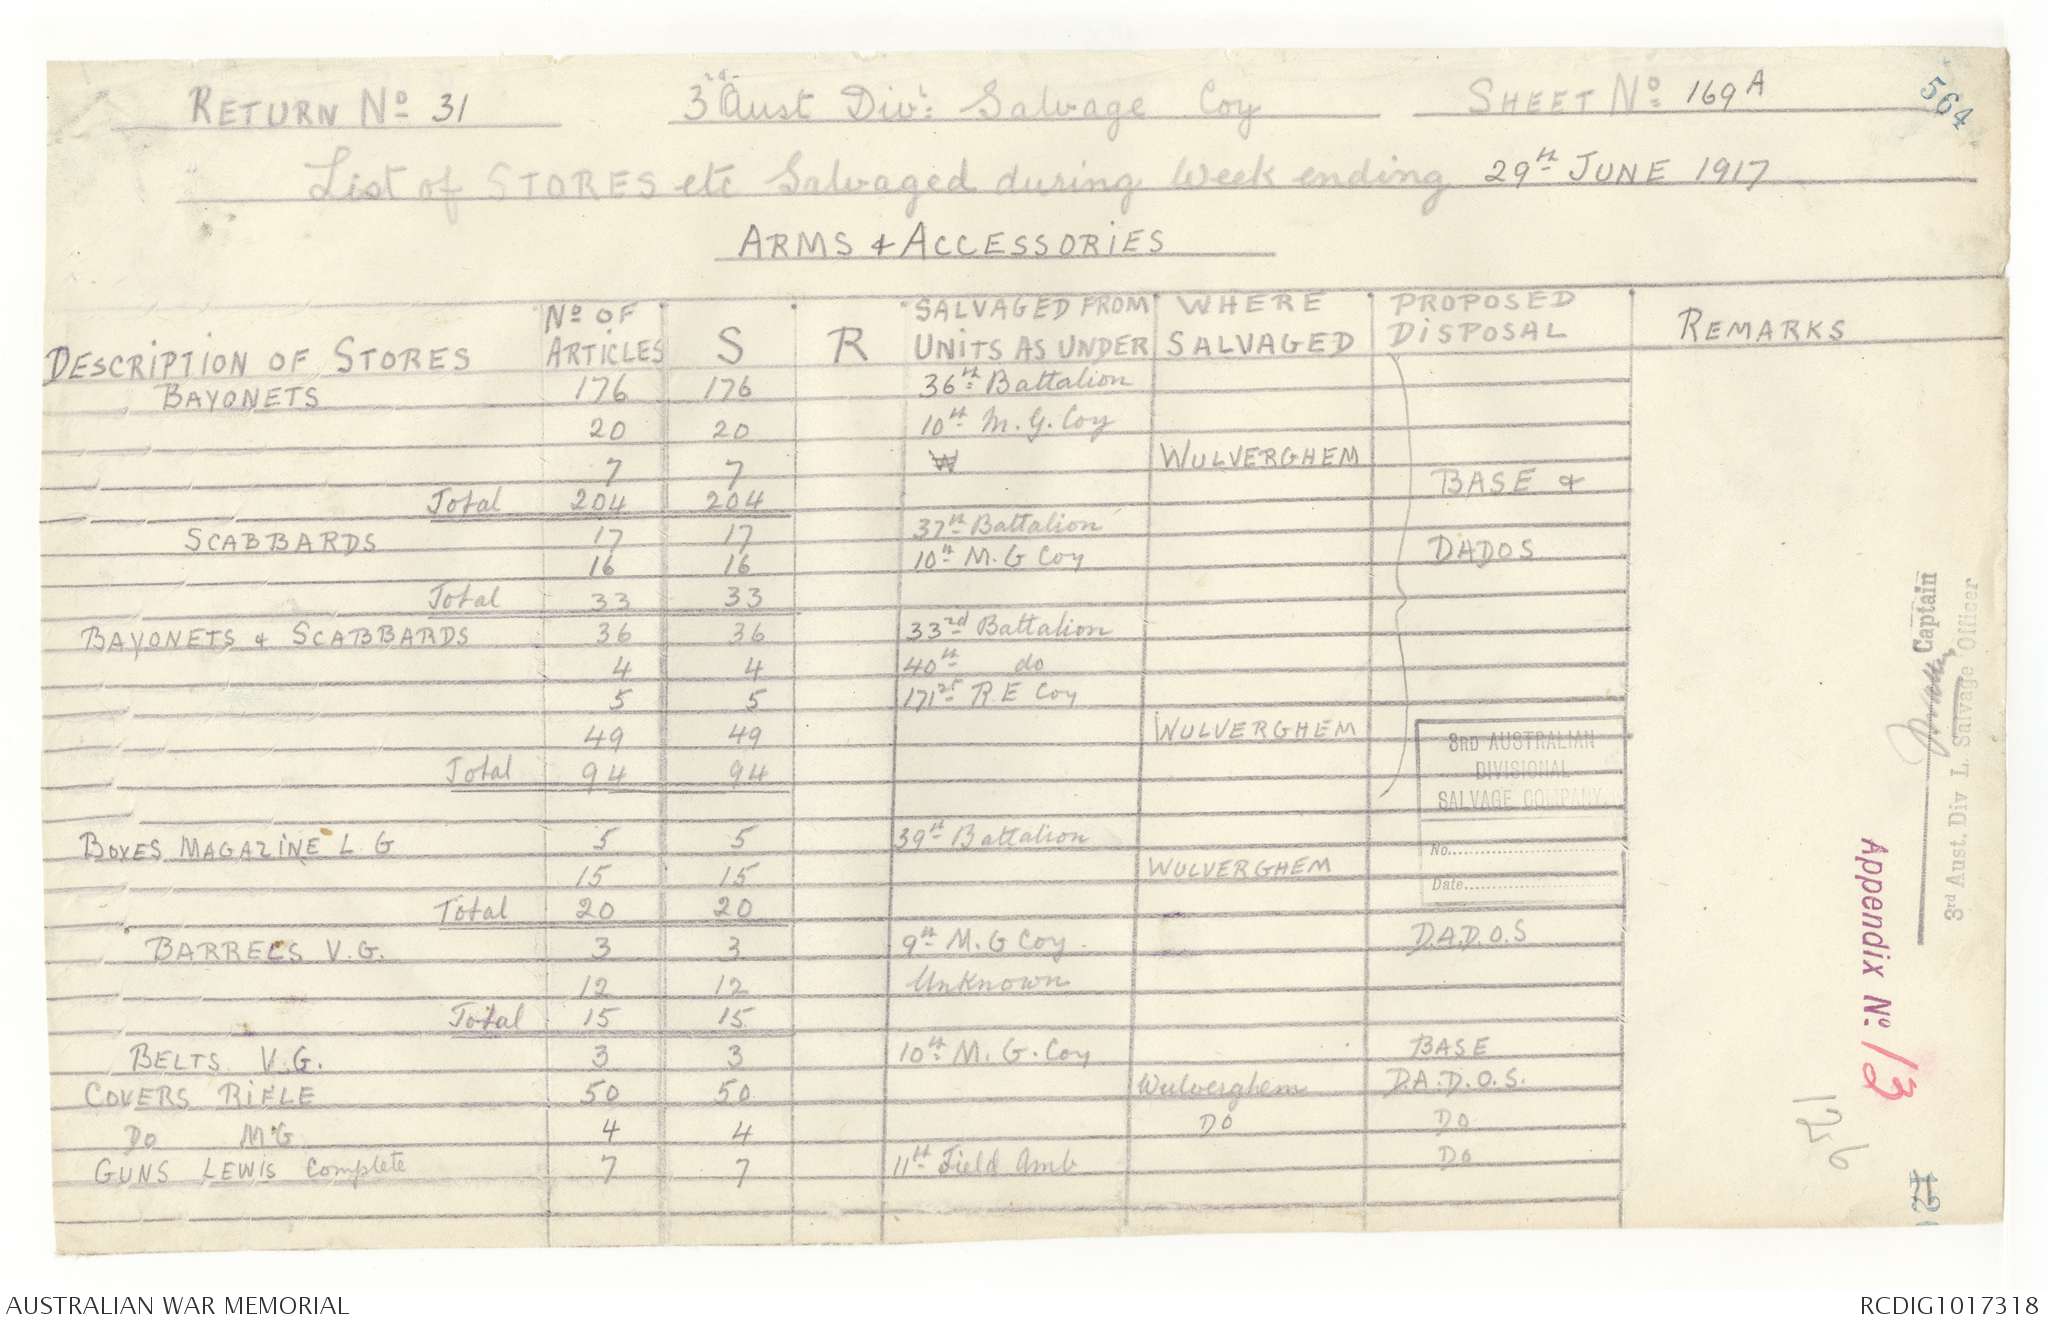 RETURN No 31 3rd Aust Div: Salvage Coy SHEET No 169A
564
List of STORES etc Salvaged during Week ending 29th JUNE 1917
ARMS & ACCESSORIES
DESCRIPTION OF STORES No OF ARTICLES S R SALVAGED FROM UNITS AS UNDER WHERE SALVAGED PROPOSED DISPOSAL REMARKS
BAYONETS 176 176 36th Battalion
20 20 10th M.G. Coy
7 7 W WULVERGHEM
Total 204 204 BASE &
SCABBARDS 17 17 37th Battalion
16 16 10th M.G Coy DADOS
Total 33 33
BAYONETS & SCABBARDS 36 36 33rd Battalion
4 4 40th do
5 5 171st R.E Coy
49 49 WULVERGHEM
Total 94 94
BOXES MAGAZINE L G 5 5 39th Battalion
15 15 WULVERGHEM
Total 20 20
BARRELS V.G. 3 3 9th M.G Coy D.A.D.O.S
12 12 Unknown
Total 15 15
BELTS V.G. 3 3 10th M.G. Coy BASE
COVERS RIFLE 50 50 Wulverghem D.A.D.O.S.
Do M.G 4 4 DO DO
GUNS LEWIS Complete 7 7 11th Field Amb DO
3RD AUSTRALIAN
DIVISIONAL
SALVAGE COMPANY.
No.
Date
Captain
3rd Aust. Div L. Salvage Officer
Appendix No. 13
126
12
AUSTRALIAN WAR MEMORIAL RCDIG1017318